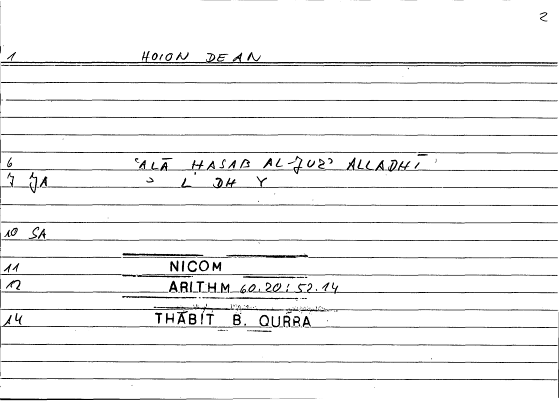 2
1 HOION DE AN
6 ʿALĀ ḤASAB AL-JUZʾ ALLADHĪ
7 JA ʾ L DH Y
10 SA
11 NICOM
12 ARITHM 60.20:52.14
14 THĀBIT B. QURRA